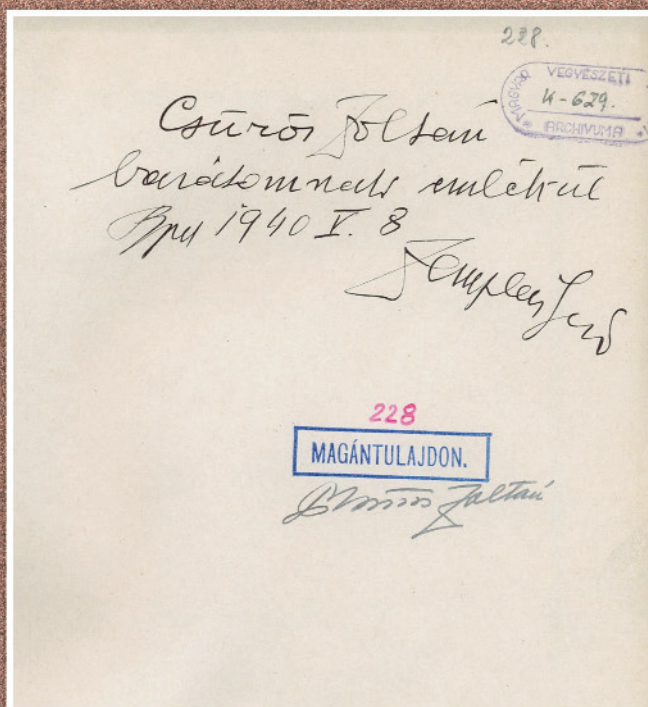 228.
MAGYAR VEGYÉSZETI
K-629.
ARCHIVUMA
Csűrös Zoltán
barátomnak emlékül
Bpest 1940 V. 8
Zemplén Jenő
228
MAGÁNTULAJDON.
Csűrös Zoltán